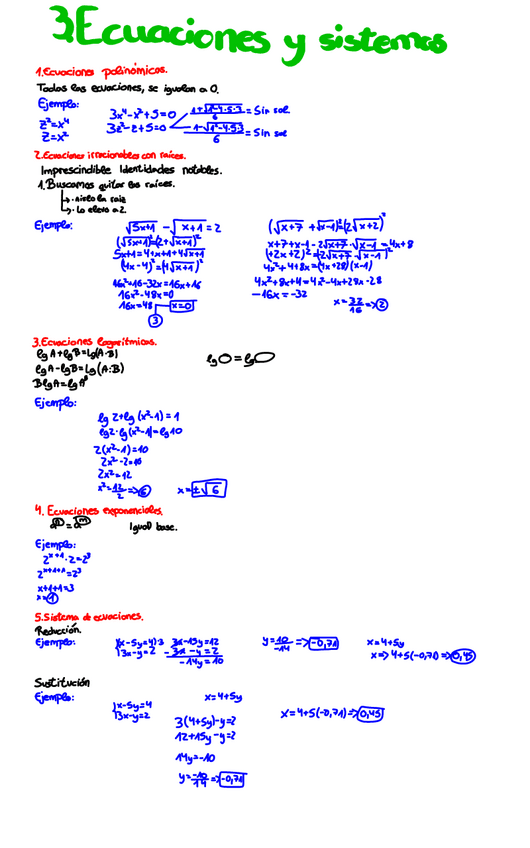 3.Ecuaciones y sistemas
1.Ecuaciones polinómicas.
Todas las ecuaciones, se igualan a 0.
Ejemplo:
3x⁴-x²+5=0
z²=x⁴
z=x²
3z²-z+5=0
1+√1²-4·5·3 / 6 = Sin sol
1-√1²-4·5·3 / 6 = Sin sol
2.Ecuaciones irracionables con raíces.
Imprescindible Identidades notables.
1.Buscamos quitar las raíces.
Lo elevo a 2.
Ejemplo:
√5x+1 - √x+1 = 2
(√5x+1)²=(2+√x+1)²
5x+1=4+x+1+4√x+1
(4x-4)²=(4√x+1)²
16x²+16-32x=16x+16
16x²-48x=0
16x=48 x=0
3
(√x+7 + √x-1)²=(2√x+2)²
x+7+x-1-2√x+7·√x-1=4x+8
(+2x+2)²=(2√x+7·√x-1)²
4x²+4+8x=(4x+28)(x-1)
4x²+8x+4=4x²-4x+28x-28
-16x=-32
x=32/16 =>2
3.Ecuaciones logarítmicas.
lgA+lgB=lg(A·B)
lgA-lgB=lg(A:B)
BlgA=lgAᴮ
lg = lg
Ejemplo:
lg2+lg(x²-1)=1
lg2·lg(x²-1)=lg10
2(x²-1)=10
2x²-2=10
2x²=12
x²=12/2 =>6 x=±√6
4. Ecuaciones exponenciales.
aⁿ=aᵐ Igual base.
Ejemplo:
2ˣ⁺¹·2=2³
2ˣ⁺¹⁺¹=2³
x+1+1=3
x=1
5.Sistema de ecuaciones.
Reducción.
Ejemplo:
(x-5y=4)·3
3x-y=2
3x-15y=12
-3x-y=2
-14y=10
y=10/-14 =>-0,71
x=4+5y
x=>4+5(-0,71)=>0,45
Sustitución
Ejemplo:
x-5y=4
3x-y=2
x=4+5y
3(4+5y)-y=2
12+15y-y=2
14y=-10
y=-10/14 =>-0,71
x=4+5(-0,71)=>0,45